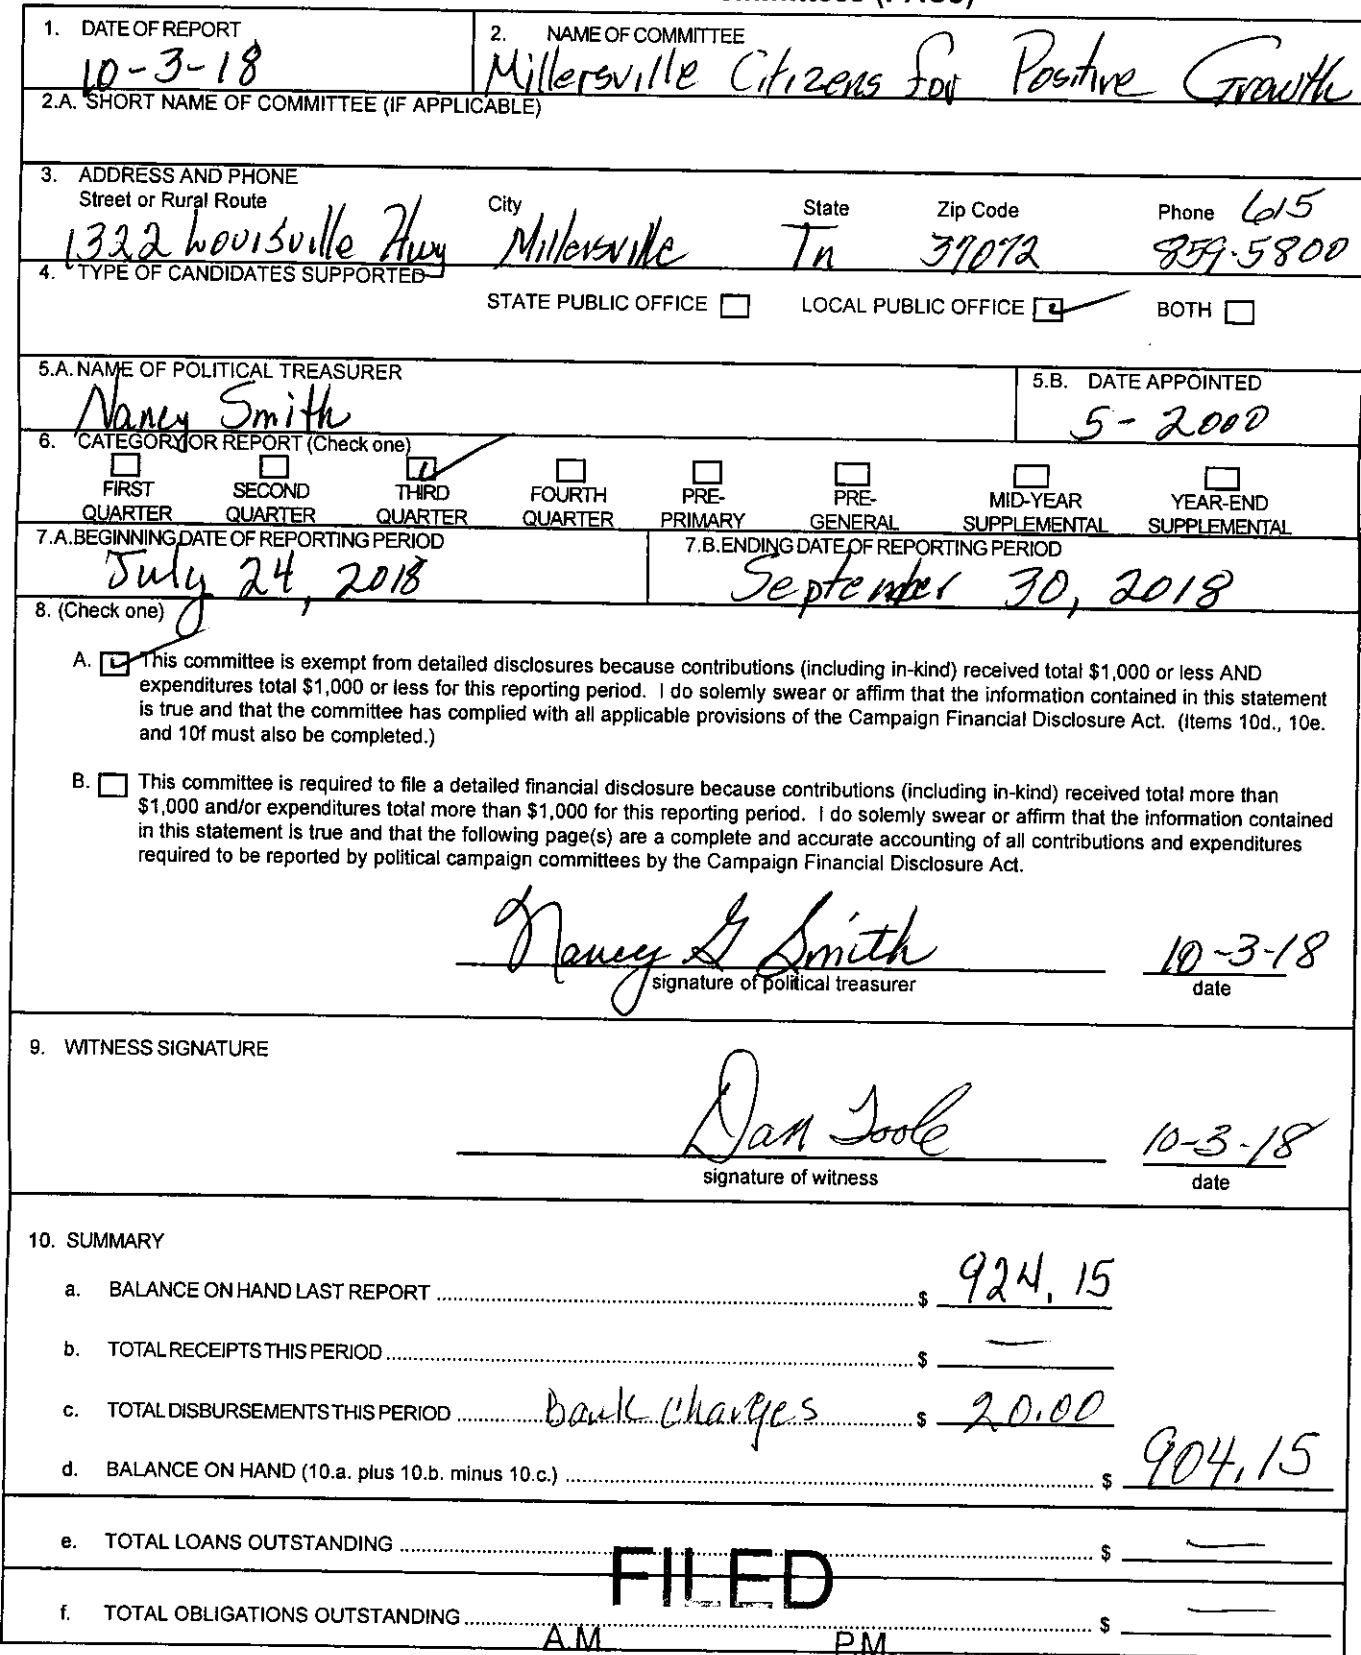 1. DATE OF REPORT 2. NAME OF COMMITTEE
10-3-18 Millersville Citizens for Positive Growth
2.A. SHORT NAME OF COMMITTEE (IF APPLICABLE)
3. ADDRESS AND PHONE
Street or Rural Route City State Zip Code Phone 615
1322 Louisville Hwy Millersville Tn 37072 859-5800
4. TYPE OF CANDIDATES SUPPORTED
STATE PUBLIC OFFICE LOCAL PUBLIC OFFICE BOTH
5.A. NAME OF POLITICAL TREASURER 5.B. DATE APPOINTED
Nancy Smith 5-2000
6. CATEGORY OR REPORT (Check one)
FIRST SECOND THIRD FOURTH PRE- PRE- MID-YEAR YEAR-END
QUARTER QUARTER QUARTER QUARTER PRIMARY GENERAL SUPPLEMENTAL SUPPLEMENTAL
7.A. BEGINNING DATE OF REPORTING PERIOD 7.B. ENDING DATE OF REPORTING PERIOD
July 24, 2018 September 30, 2018
8. (Check one)
A. This committee is exempt from detailed disclosures because contributions (including in-kind) received total $1,000 or less AND
expenditures total $1,000 or less for this reporting period. I do solemly swear or affirm that the information contained in this statement
is true and that the committee has complied with all applicable provisions of the Campaign Financial Disclosure Act. (Items 10d., 10e.
and 10f must also be completed.)
B. This committee is required to file a detailed financial disclosure because contributions (including in-kind) received total more than
$1,000 and/or expenditures total more than $1,000 for this reporting period. I do solemly swear or affirm that the information contained
in this statement is true and that the following page(s) are a complete and accurate accounting of all contributions and expenditures
required to be reported by political campaign committees by the Campaign Financial Disclosure Act.
Nancy G Smith 10-3-18
signature of political treasurer date
9. WITNESS SIGNATURE
Dan Toole 10-3-18
signature of witness date
10. SUMMARY
a. BALANCE ON HAND LAST REPORT $ 924.15
b. TOTAL RECEIPTS THIS PERIOD $ —
c. TOTAL DISBURSEMENTS THIS PERIOD Bank Charges $ 20.00
d. BALANCE ON HAND (10.a. plus 10.b. minus 10.c.) $ 904.15
e. TOTAL LOANS OUTSTANDING $ —
FILED
f. TOTAL OBLIGATIONS OUTSTANDING $ —
A.M. P.M.